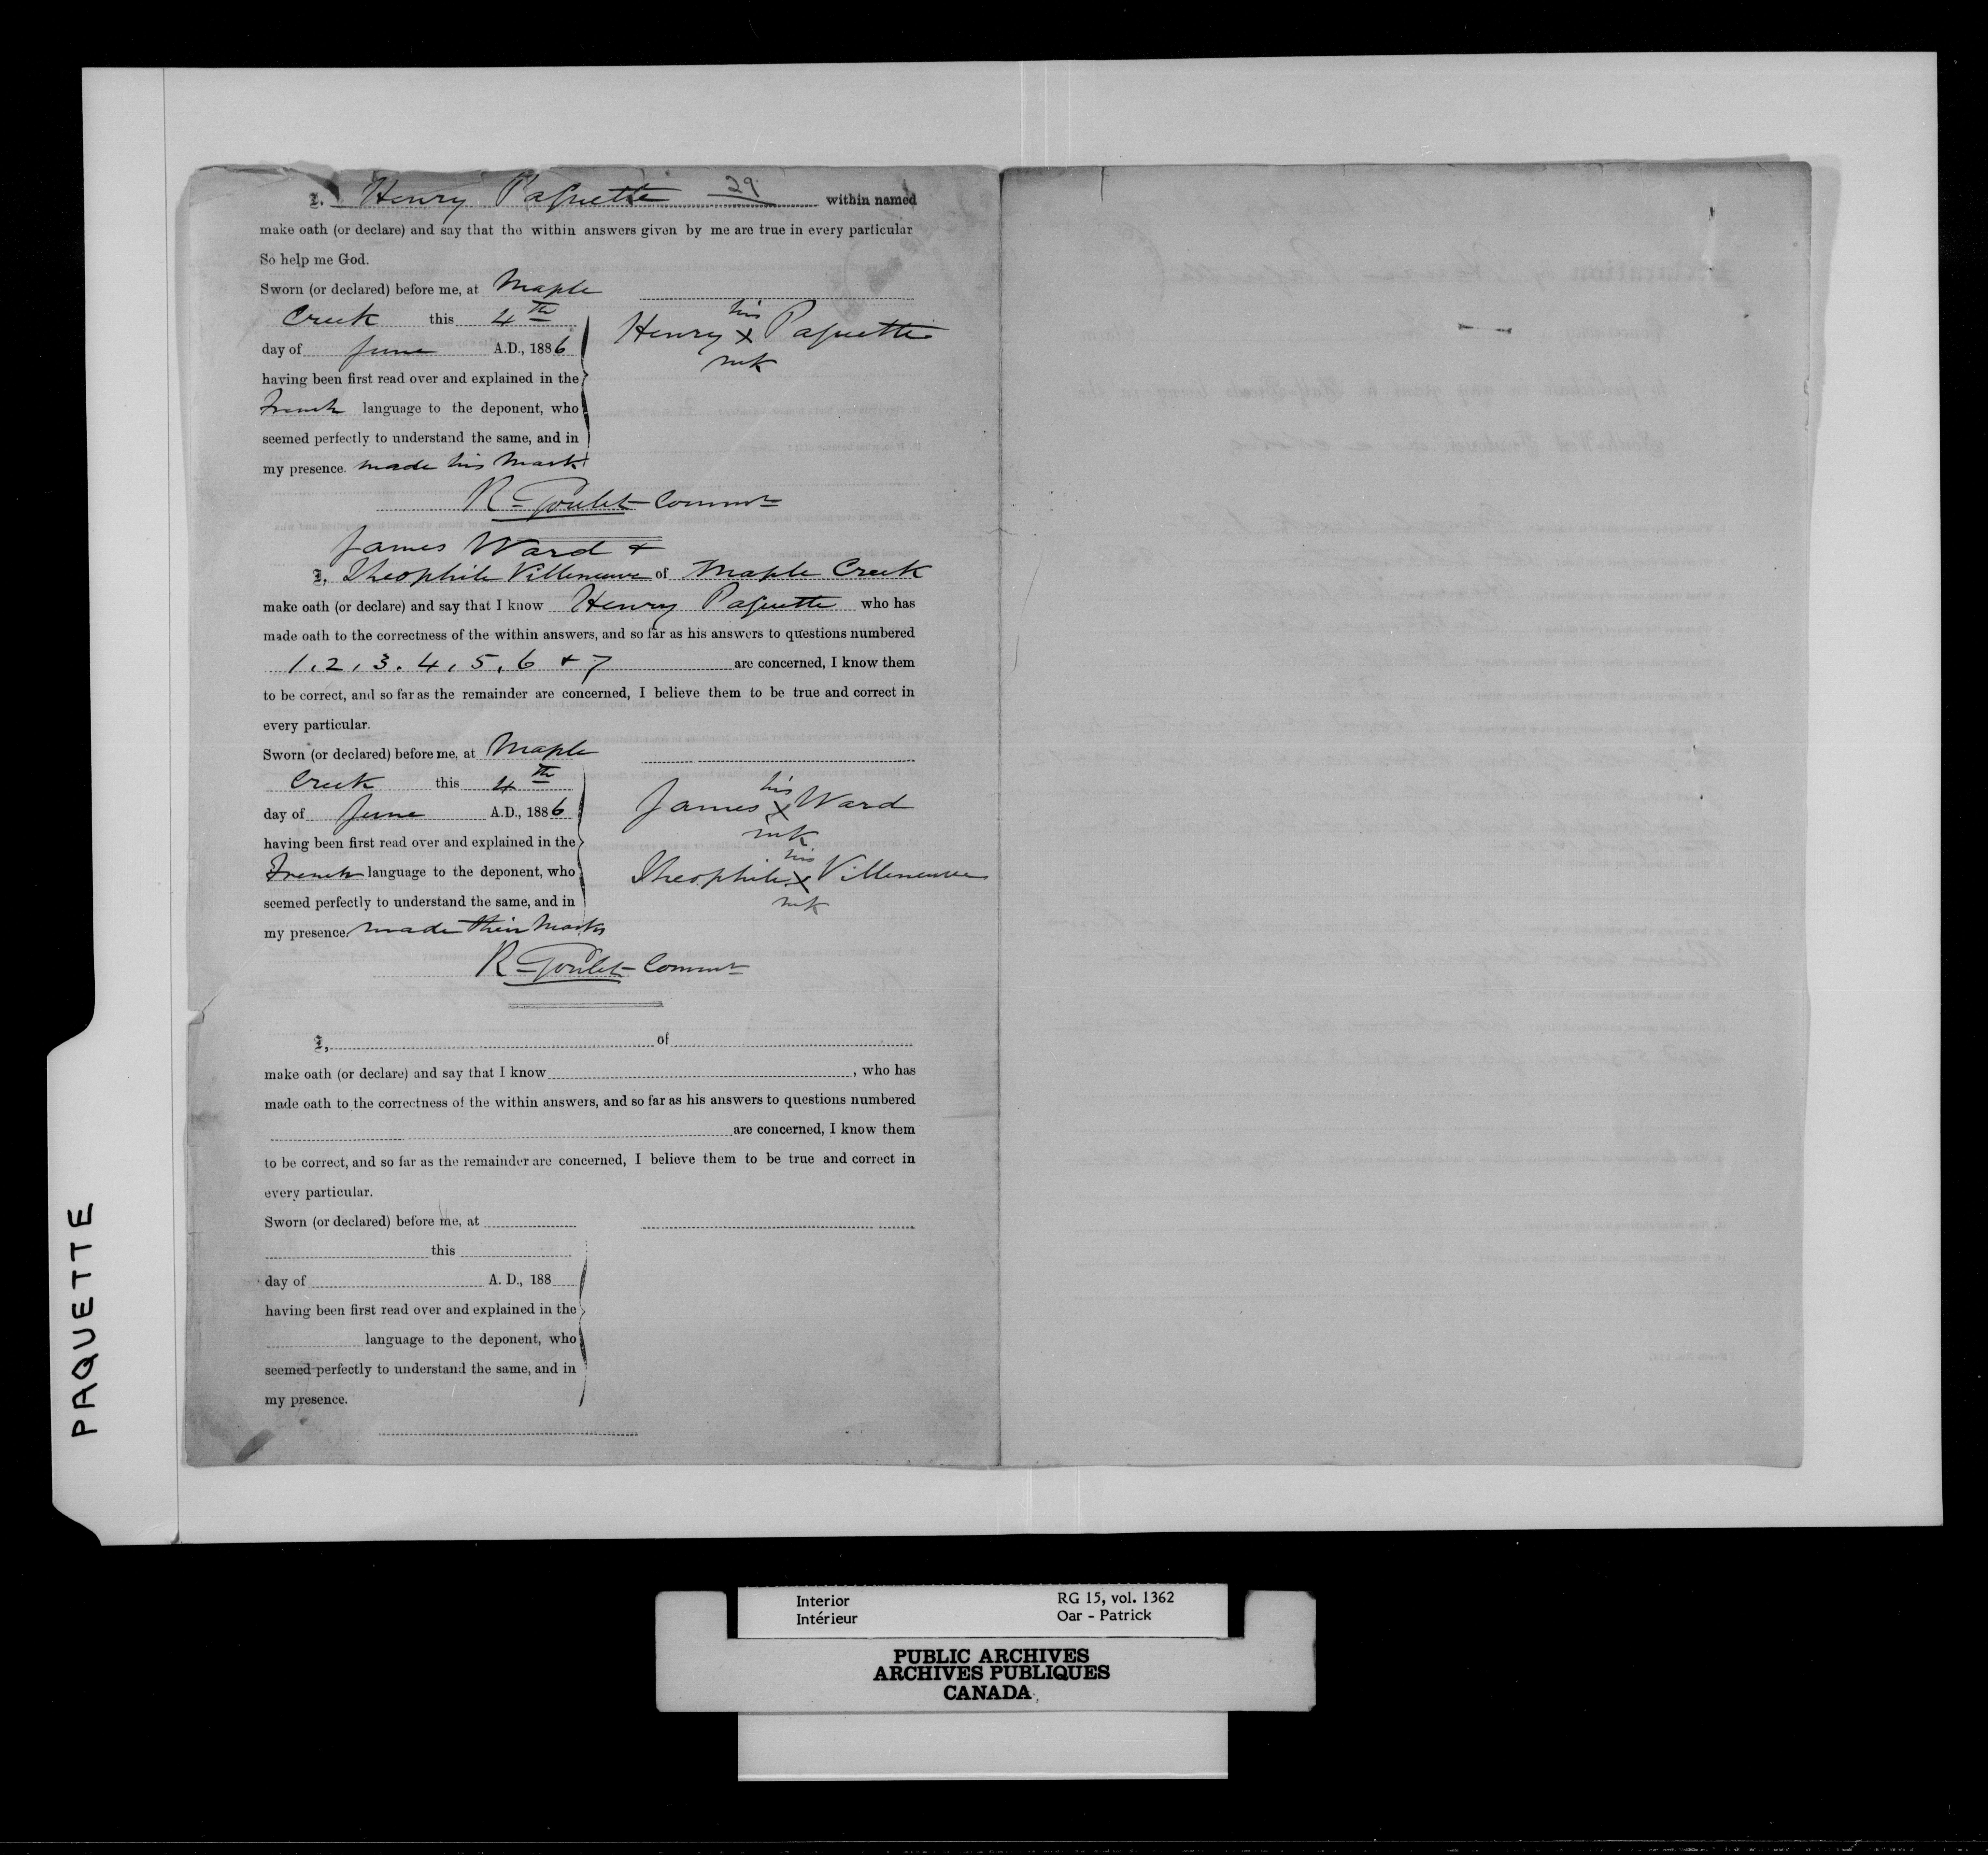 I, Henry Paquette 29 within named
make oath (or declare) and say that the within answers given by me are true in every particular
So help me God.
Sworn (or declared) before me, at Maple
Creek this 4th
day of June A.D., 1886
having been first read over and explained in the
French language to the deponent, who
seemed perfectly to understand the same, and in
my presence. made his mark
his
Henry X Paquette
mk
R. Goulet Commr
James Ward &
I, Theophile Villeneuve of Maple Creek
make oath (or declare) and say that I know Henry Paquette who has
made oath to the correctness of the within answers, and so far as his answers to questions numbered
1, 2, 3, 4, 5, 6 & 7 are concerned, I know them
to be correct, and so far as the remainder are concerned, I believe them to be true and correct in
every particular.
Sworn (or declared) before me, at Maple
Creek this 4th
day of June A.D., 1886
having been first read over and explained in the
French language to the deponent, who
seemed perfectly to understand the same, and in
my presence. made their marks
his
James X Ward
mk
his
Theophile X Villeneuve
mk
R. Goulet Commr
I, of
make oath (or declare) and say that I know , who has
made oath to the correctness of the within answers, and so far as his answers to questions numbered
are concerned, I know them
to be correct, and so far as the remainder are concerned, I believe them to be true and correct in
every particular.
Sworn (or declared) before me, at
this
day of A. D., 188
having been first read over and explained in the
language to the deponent, who
seemed perfectly to understand the same, and in
my presence.
PAQUETTE
Interior
Intérieur
RG 15, vol. 1362
Oar - Patrick
PUBLIC ARCHIVES
ARCHIVES PUBLIQUES
CANADA